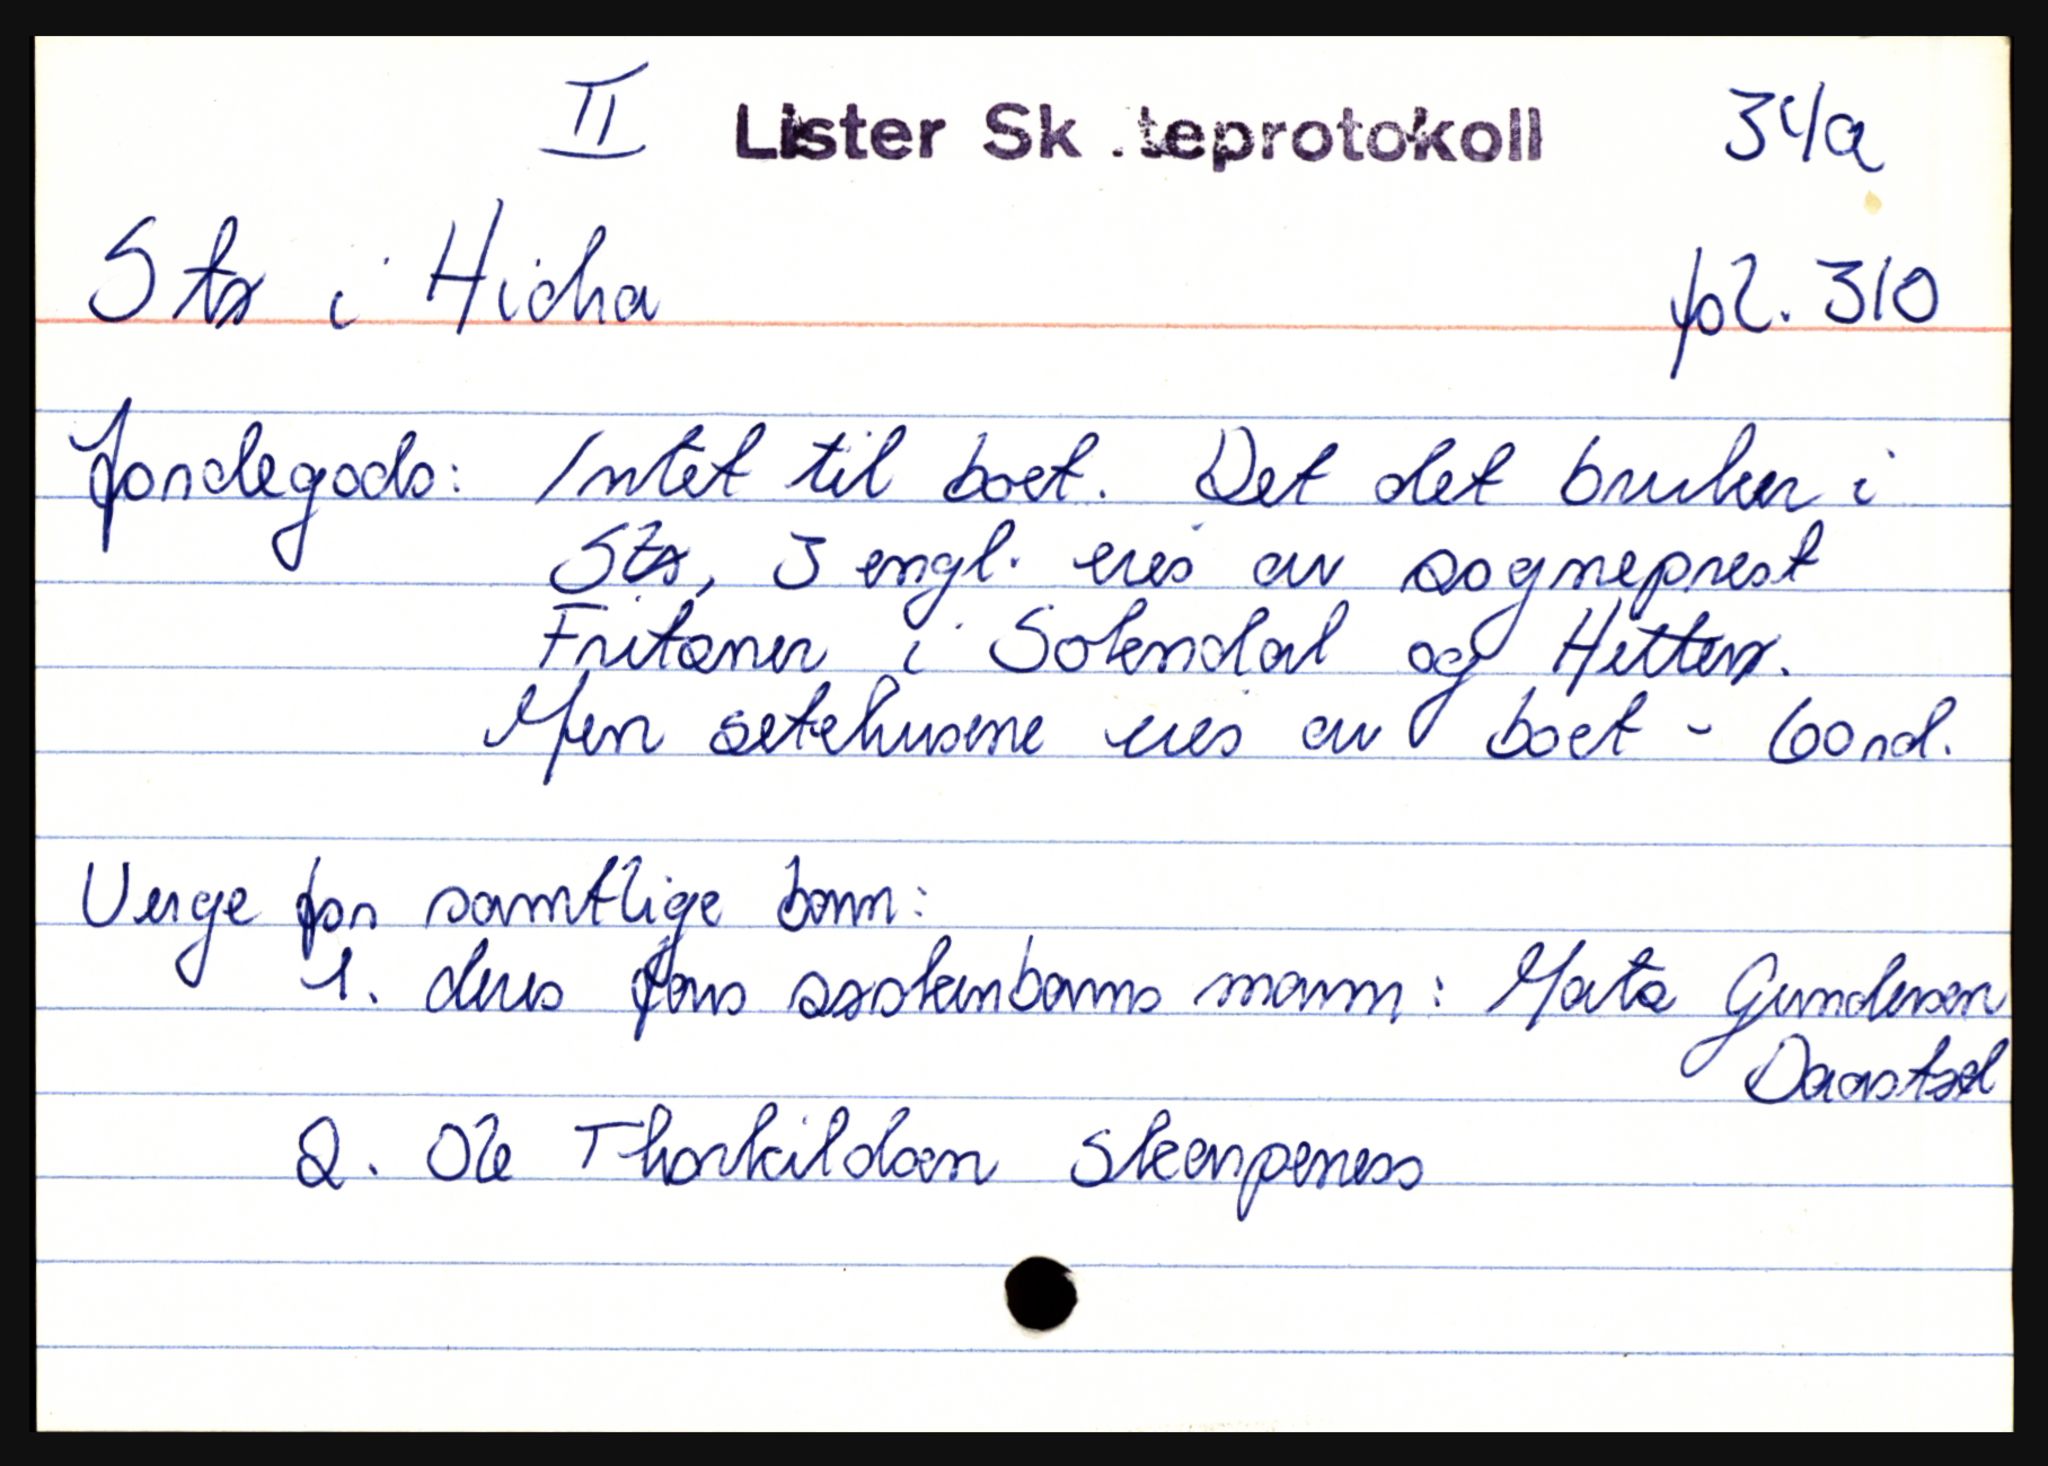 II Lister Sk.teprotokoll 34/a
Stø i Hidra fol. 310
Jordegods: Intet til boet. Det det bruker i
Stø, 3 engl. eies av sogneprest
Fritzner i Sokndal og Hitterø.
Men setehusene eies av boet - 60 rd.
Verge for samtlige barn:
1. deres fars søskenbarns mann: Mats Gundersen
Daastøl
2. Ole Thorkildsen Skarpeness